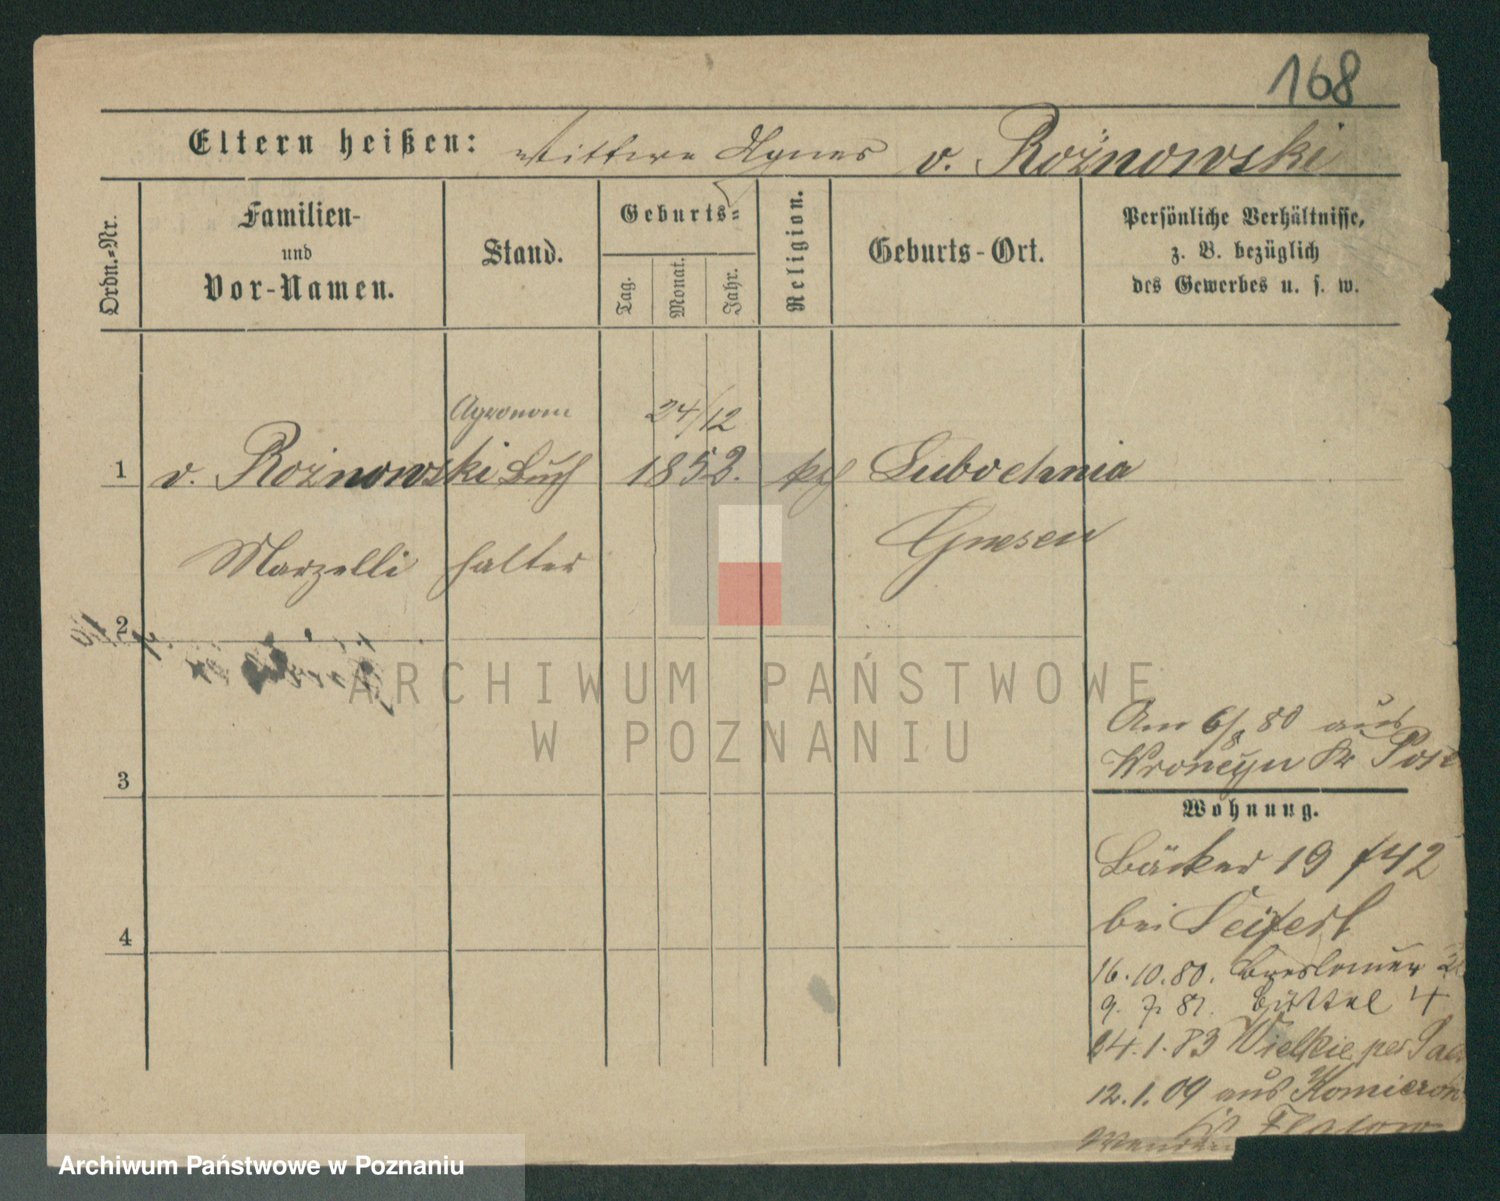 168
Eltern heißen: Wittwe Agnes v. Rożnowski
Ordn.-Nr.
Familien-
und
Vor-Namen.
Stand.
Geburts-
Tag.
Monat.
Jahr.
Religion.
Geburts-Ort.
Persönliche Verhältnisse,
z. B. bezüglich
des Gewerbes u. s. w.
Agronom 24/12
1 v. Rożnowski Buch 1852. kath Lubochnia
Marzelli halter Gnesen
2
3
4
Am 6/8 80 aus
Kr Pose
Wohnung.
Bäcker 19 f 42
bei Seifert
16.10.80. Breslauer
9. 7. 81. Büttel 4
24.1.83 Wielkie per
12.1.09 aus Komieron
Flatow
ARCHIWUM PAŃSTWOWE
W POZNANIU
Archiwum Państwowe w Poznaniu